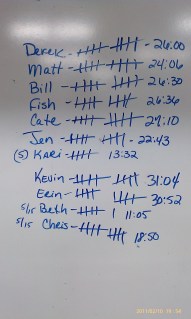 Derek - 𝍸 𝍸 - 26:00
Matt - 𝍸 𝍸 - 24:06
Bill - 𝍸 𝍸 - 26:30
Fish - 𝍸 𝍸 - 26:36
Cate - 𝍸 𝍸 - 29:10
Jen - 𝍸 𝍸 - 22:43
(5) Kari - 𝍸 13:32
Kevin - 𝍸 𝍸 31:04
Erin - 𝍸 𝍸 30:52
5/15 Beth - 𝍸 | 11:05
5/15 Chris - 𝍸 𝍸 18:50